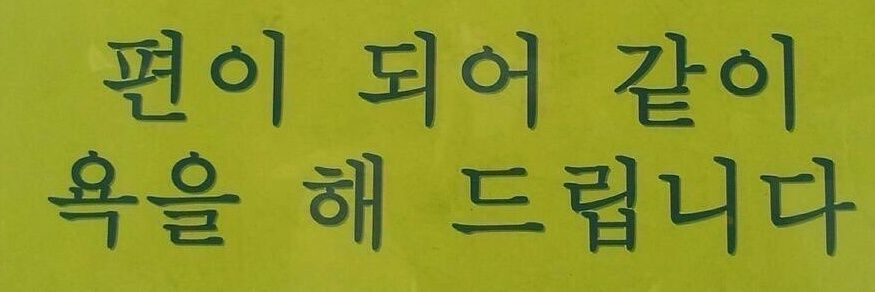 편이 되어 같이
욕을 해 드립니다